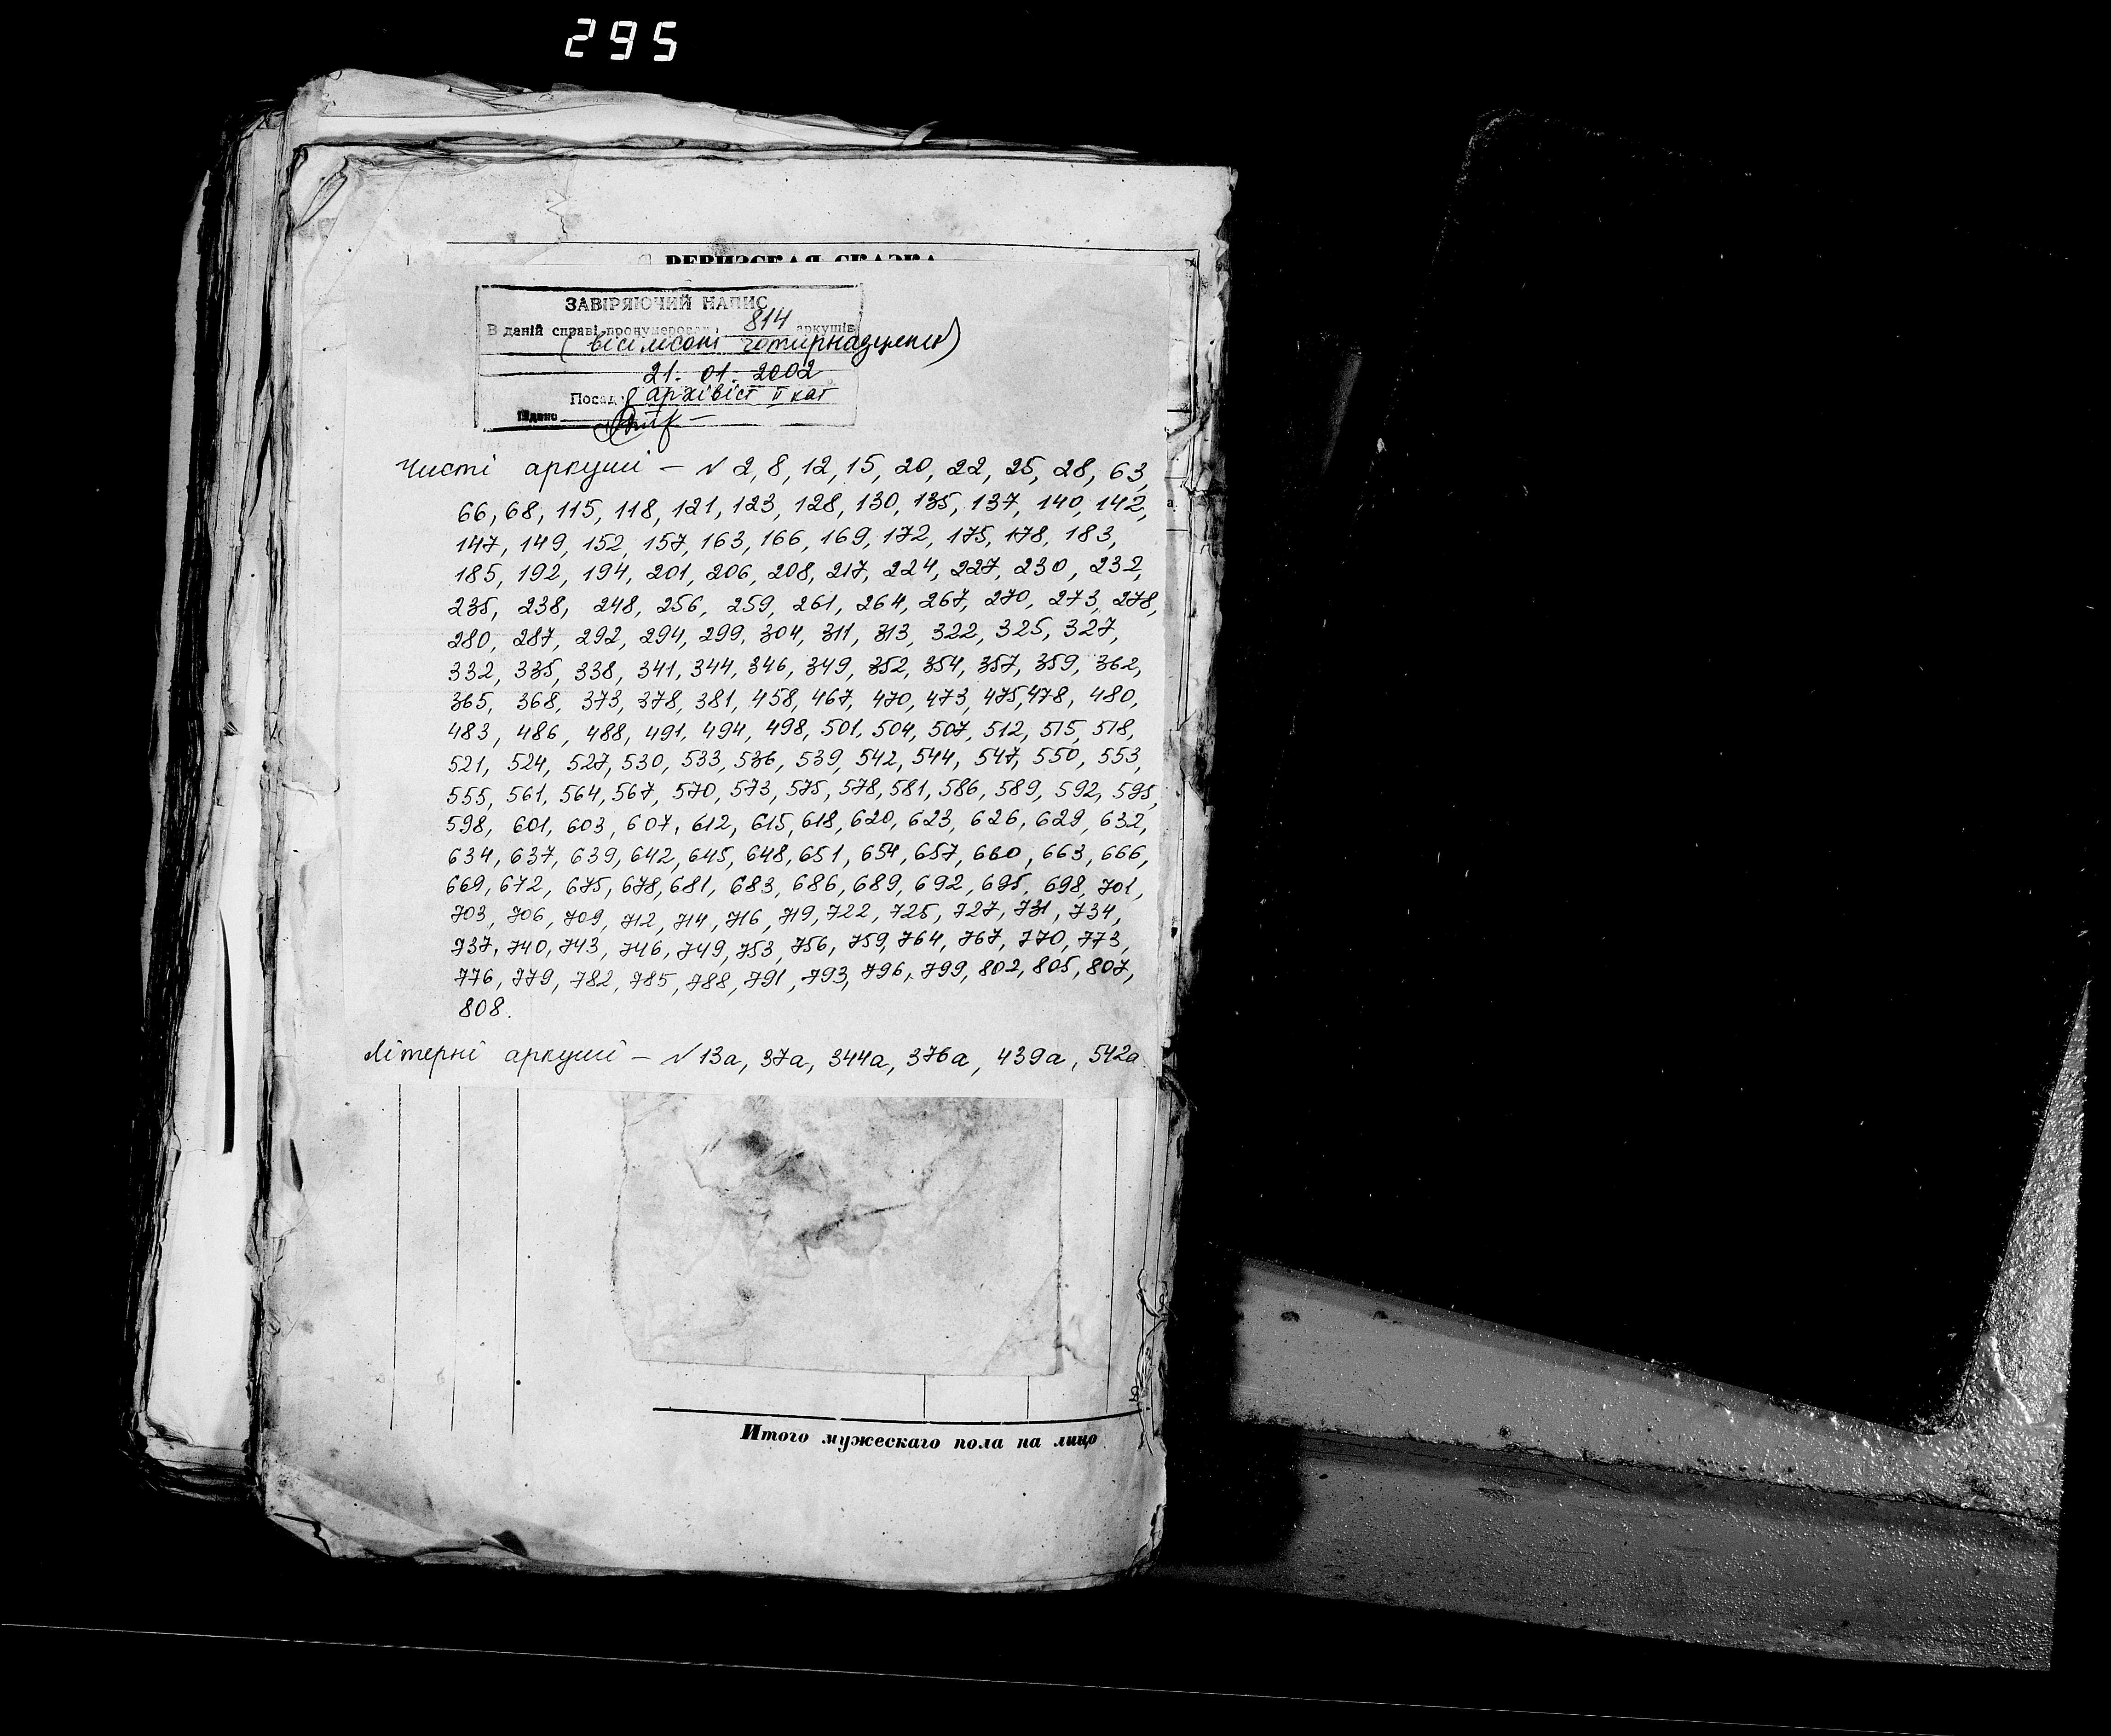 295
РЕВИЗСКАЯ СКАЗКА
ЗАВІРЯЮЧИЙ НАПИС
В даній справі пронумеровано 814 аркушів
(вісімсот чотирнадцять)
21. 01. 2002
Посада архівіст II кат
Чисті аркуші – № 2, 8, 12, 15, 20, 22, 25, 28, 63,
66, 68, 115, 118, 121, 123, 128, 130, 135, 137, 140, 142,
147, 149, 152, 157, 163, 166, 169, 172, 175, 178, 183,
185, 192, 194, 201, 206, 208, 217, 224, 227, 230, 232,
235, 238, 248, 256, 259, 261, 264, 267, 270, 273, 278,
280, 287, 292, 294, 299, 304, 311, 313, 322, 325, 327,
332, 335, 338, 341, 344, 346, 349, 352, 354, 357, 359, 362,
365, 368, 373, 378, 381, 458, 467, 470, 473, 475, 478, 480,
483, 486, 488, 491, 494, 498, 501, 504, 507, 512, 515, 518,
521, 524, 527, 530, 533, 536, 539, 542, 544, 547, 550, 553,
555, 561, 564, 567, 570, 573, 575, 578, 581, 586, 589, 592, 595,
598, 601, 603, 607, 612, 615, 618, 620, 623, 626, 629, 632,
634, 637, 639, 642, 645, 648, 651, 654, 657, 660, 663, 666,
669, 672, 675, 678, 681, 683, 686, 689, 692, 695, 698, 701,
703, 706, 709, 712, 714, 716, 719, 722, 725, 727, 731, 734,
737, 740, 743, 746, 749, 753, 756, 759, 764, 767, 770, 773,
776, 779, 782, 785, 788, 791, 793, 796, 799, 802, 805, 807,
808.
Літерні аркуші – № 13а, 37а, 344а, 376а, 439а, 542а
Итого мужескаго пола на лицо